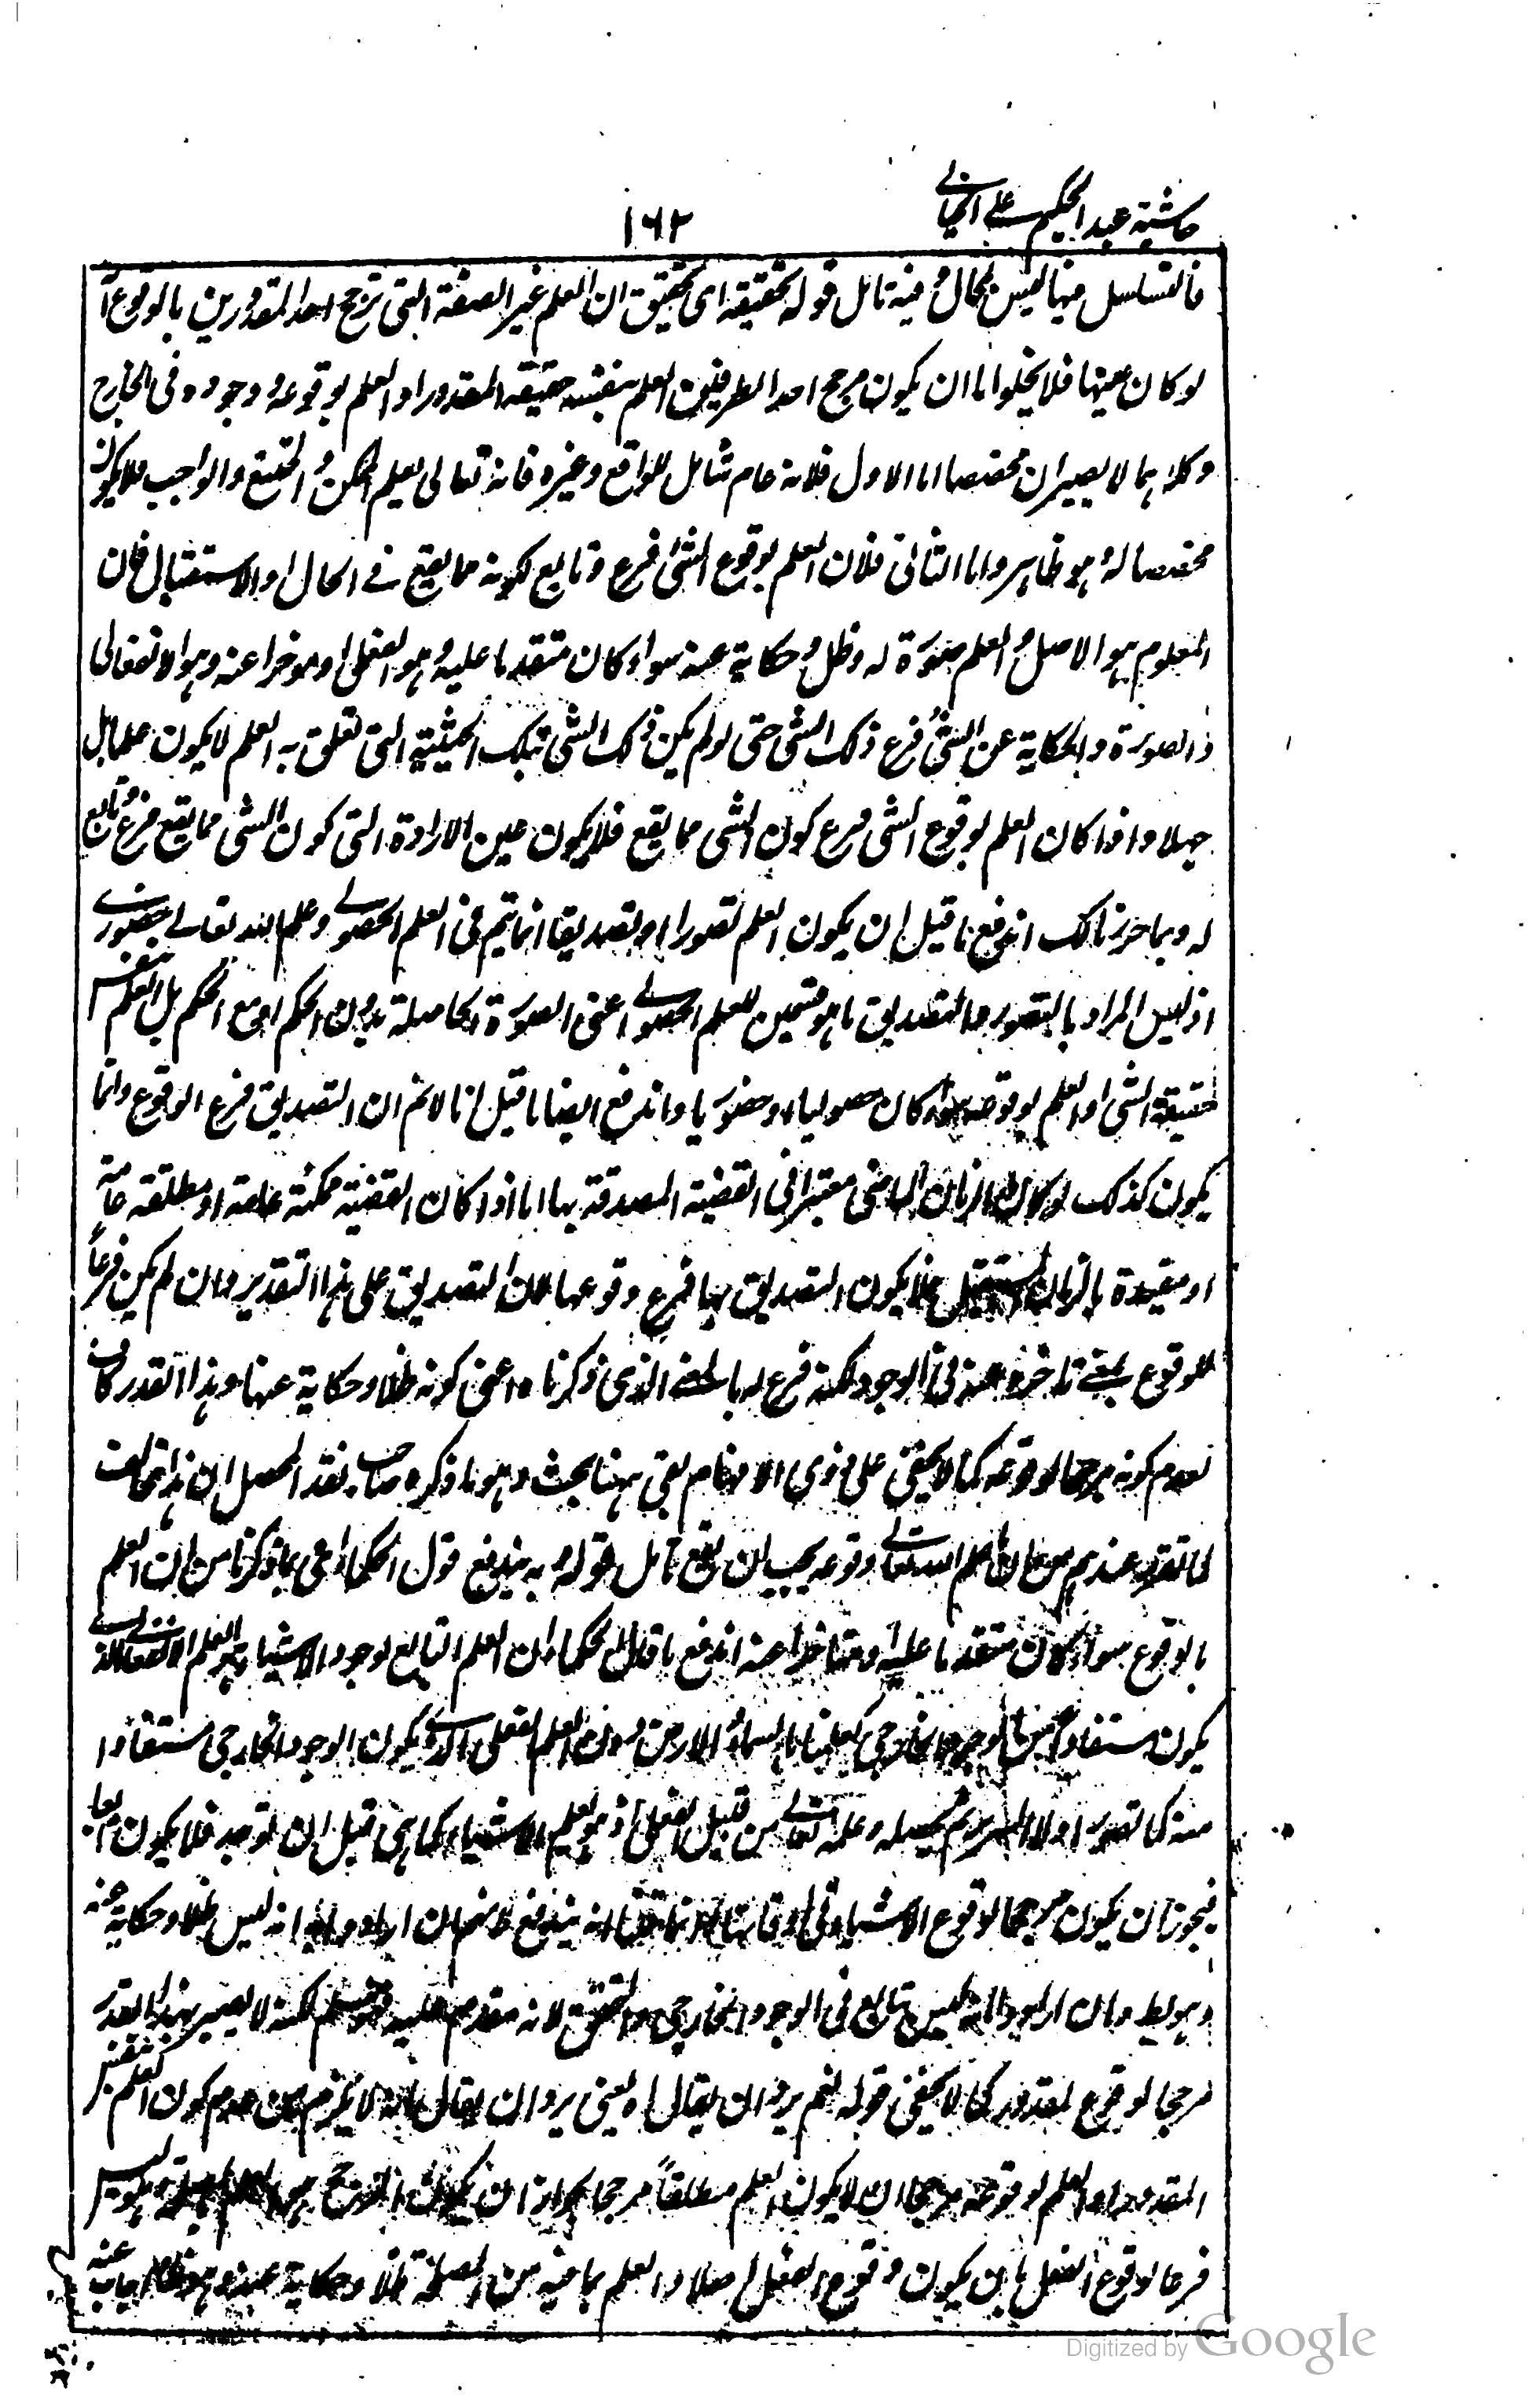 حاشية عبد الحكيم على الخيالي
١٦٢
فالتسلسل فيها ليس بمحال وفيه تامل قوله تحقيقه اى تحقيق ان العلم غير الصفة التى ترجح احد المقدورين بالوقوع انه
لو كان عينها فلا يخلوا ما ان يكون مرجح احد الطرفين العلم بنفس حقيقة المقدور او العلم بوقوعه ووجوده فى الخارج
وكلاهما لا يصيران مخصصا اما الاول فلانه عام شامل للواقع وغيره فانه تعالى يعلم الممكن والممتنع والواجب فلا يكون
مخصصا له وهو ظاهر واما الثانى فلان العلم بوقوع الشئ فرع وتابع لكونه مما يقع فى الحال او الاستقبال فان
المعلوم هو الاصل والعلم صورة له وظل وحكاية عنه سواء كان متقدما عليه وهو الفعلى او موخرا عنه وهو الانفعالى
والصورة والحكاية عن الشئ فرع ذلك الشئ حتى لو لم يكن ذلك الشئ بتلك الحيثية التى تعلق به العلم لا يكون علما بل
جهلا واذا كان العلم بوقوع الشئ فرع كون الشئ مما يقع فلا يكون عين الارادة التى كون الشئ مما يقع فرع وتابع
له وبما حررنا لك اندفع ما قيل ان يكون العلم تصورا او تصديقا انما يتم فى العلم الحصولى وعلم الله تعالى حضورى
اذ ليس المراد بالتصور والتصديق ما هو قسمين للعلم الحصولى اعنى الصورة الحاصلة بدون الحكم او مع الحكم بل العلم بنفس
حقيقة الشئ او العلم بوقوعه سواء كان حصوليا او حضوريا واندفع ايضا ما قيل انا لا نم ان التصديق فرع الوقوع وانما
يكون كذلك لو كان الزمان الماضى معتبرا فى القضية المصدقة بها اما اذا كان القضية ممكنة عامة او مطلقة عامة
او مقيدة بالزمان المستقبل فلا يكون التصديق بها فرع وقوعها لان التصديق على هذا التقدير وان لم يكن فرعا
للوقوع بمعنى تاخره عنه فى الوجود لكنه فرع له بالمعنى الذى ذكرناه اعنى كونه ظلا وحكاية عنها وهذا القدر كاف
لعدم كونه مرجحا لوقوعه كما لا يخفى على ذوى الافهام بقى ههنا بحث وهو ما ذكره صاحب نقد المحصل ان هذا مخالف
لما تقرر عندهم من ان ما علم الله تعالى وقوعه يجب ان يقع تامل قوله وبه يندفع قول الحكماء اى بما ذكرنا من ان العلم
بالوقوع سواء كان متقدما عليه او متاخرا عنه اندفع ما قال الحكماء ان العلم التابع لوجود الاشياء هو العلم الانفعالى الذى
يكون مستفادا من الوجود الخارجى كعلمنا بالسماء والارض دون العلم الفعلى الذى يكون الوجود الخارجى مستفادا
منه كما تصور اولا السرير ثم تحصله وعلمه تعالى من قبيل الفعلى اذ هو يعلم الاشياء كما هى قبل ان توجد فلا يكون تابعا
فيجوز ان يكون مرجحا لوقوع الاشياء فى اوقاتها وانما قلنا انه يندفع لانهم ان ارادوا به انه ليس ظلا وحكاية عنه
فهو بط وان ارادوا انه ليس بتابع فى الوجود الخارجى والتحقق لانه مقدم عليه فهو مسلم لكنه لا يصير بهذا القدر
مرجحا لوقوع المقدور كما لا يخفى قوله نعم يرد ان يقال اه يعنى يرد ان يقال بانه لا يلزم من عدم كون العلم بنفس
المقدور او العلم بوقوعه مرجحا ان لا يكون العلم مطلقا مرجحا لجواز ان يكون المرجح هو العلم بالمصلحة وهو ليس
فرعا لوقوع الفعل بان يكون وقوع الفعل اصلا والعلم بما فيه من المصلحة ظلا وحكاية عنه وهو ظاهر اجاب عنه